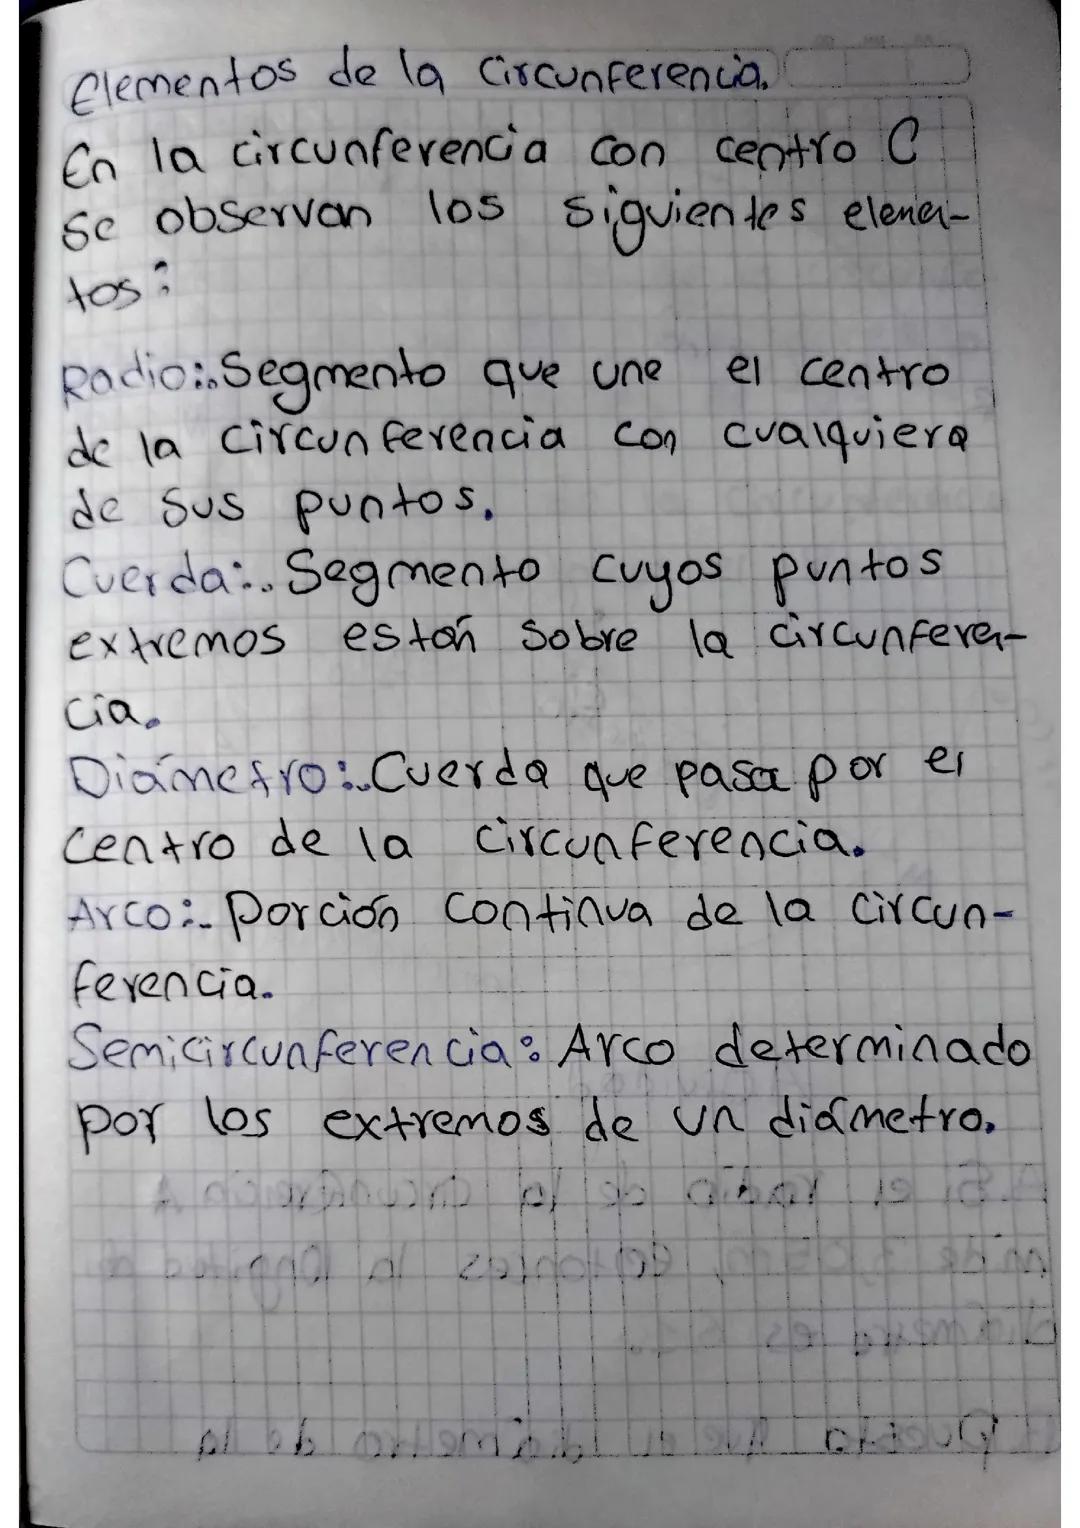 Elementos de la Circunferencia.
En la circunferencia con centro C
se observan los siguientes elemen-
tos:
Radio:. Segmento que une el centro
de la circunferencia con cualquiera
de sus puntos.
Cuerda:. Segmento cuyos puntos
extremos están sobre la circunferen-
cia.
Diámetro:. Cuerda que pasa por el
centro de la circunferencia.
Arco:. Porción continua de la circun-
ferencia.
Semicircunferencia: Arco determinado
por los extremos de un diámetro.